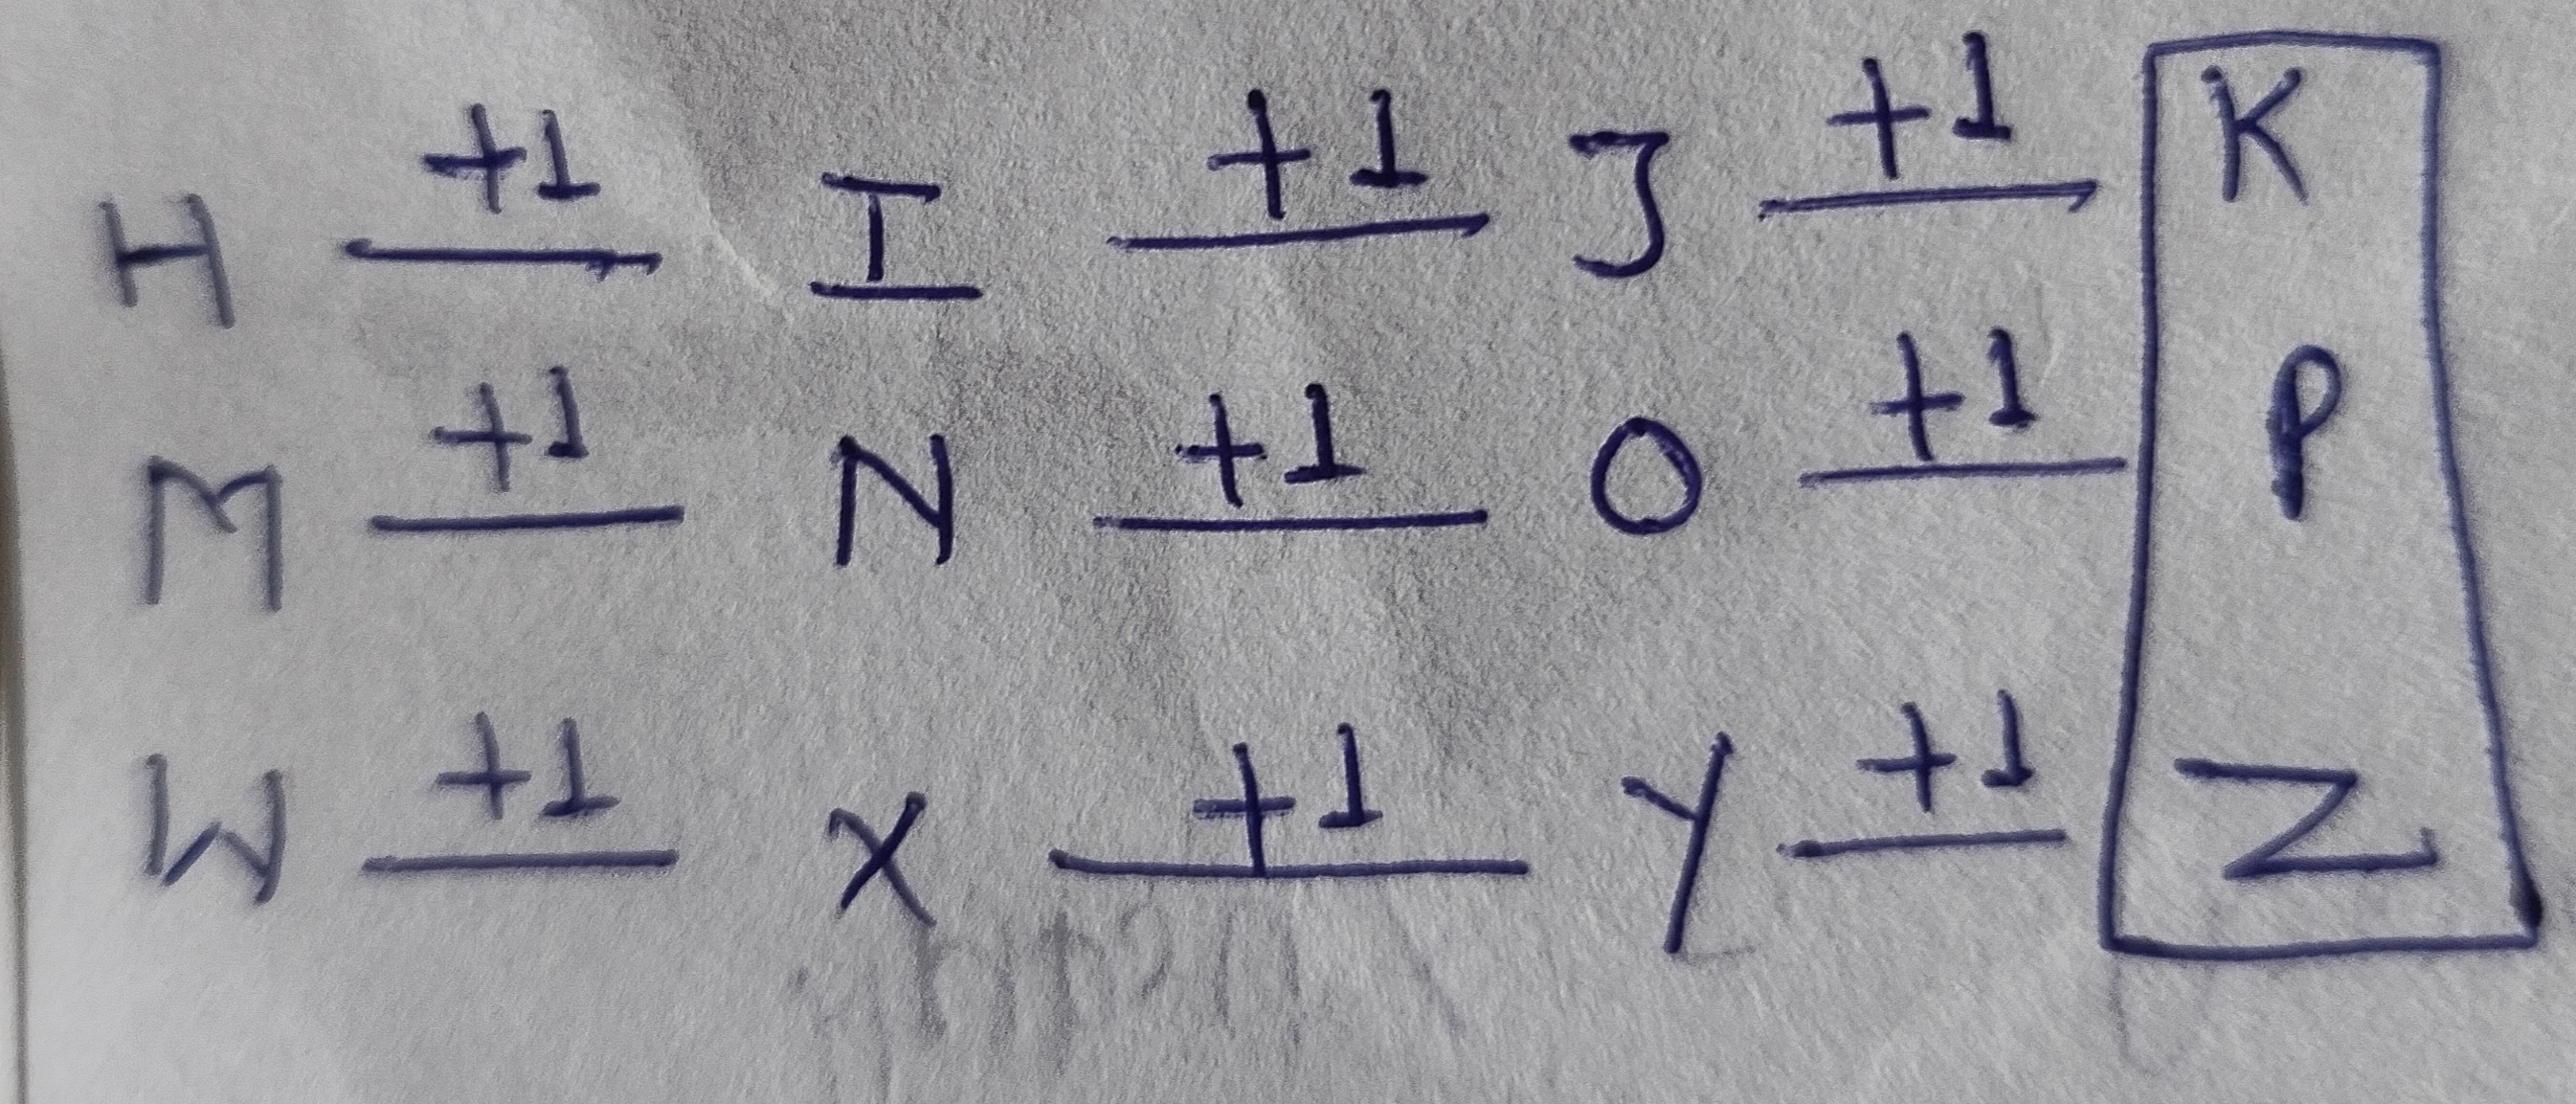 H +1 I +1 J +1 K
M +1 N +1 O +1 P
W +1 X +1 Y +1 Z